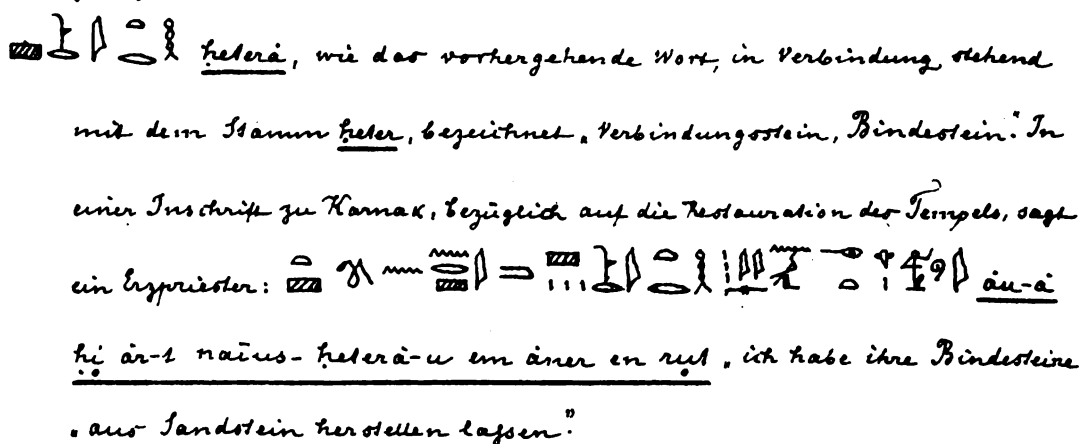 ḥeterȧ, wie das vorhergehende Wort, in Verbindung stehend
mit dem Stamm ḥeter, bezeichnet „Verbindungsstein, Bindestein.“ In
einer Inschrift zu Karnak, bezüglich auf die Restauration des Tempels, sagt
ein Erzpriester: ȧu-ȧ
ḥi ȧr-t naïus-ḥeterȧ-u em ȧner en ruṭ „ich habe ihre Bindesteine
„aus Sandstein herstellen laſsen.“